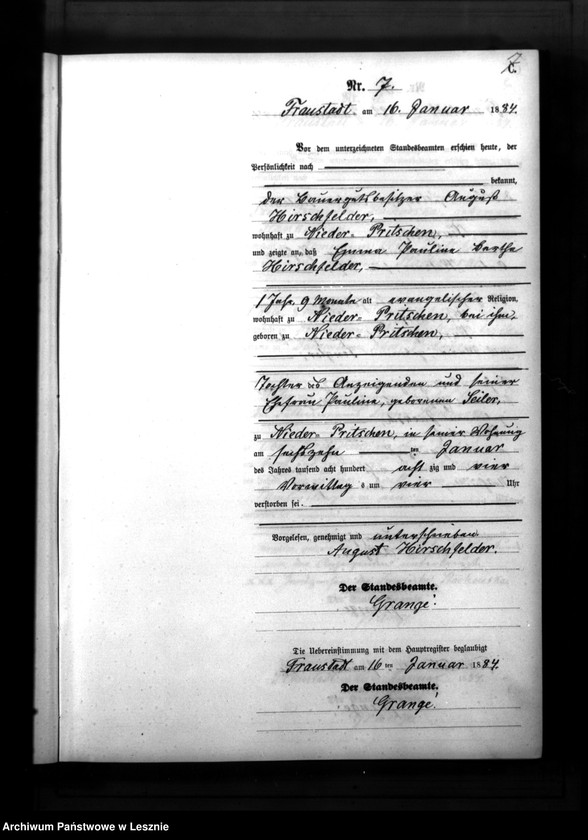 7.
C.
Nr. 7.
Fraustadt am 16. Januar 1884.
Vor dem unterzeichneten Standesbeamten erschien heute, der
Persönlichkeit nach
bekannt,
der Bauergutsbesitzer August
Hirschfelder,
wohnhaft zu Nieder-Pritschen,
und zeigte an, daß Emma Pauline Bertha
Hirschfelder,
1 Jahr, 9 Monate alt evangelischer Religion,
wohnhaft zu Nieder-Pritschen, bei ihm,
geboren zu Nieder-Pritschen,
Tochter des Anzeigenden und seiner
Ehefrau Pauline, geborenen Seiler,
zu Nieder-Pritschen, in seiner Wohnung
am sechszehn ten Januar
des Jahres tausend acht hundert acht zig und vier
Vormittag s um vier Uhr
verstorben sei.
Vorgelesen, genehmigt und unterschrieben
August Hirschfelder.
Der Standesbeamte.
Grange.
Die Uebereinstimmung mit dem Hauptregister beglaubigt
Fraustadt am 16 ten Januar 1884.
Der Standesbeamte.
Grange.
Archiwum Państwowe w Lesznie